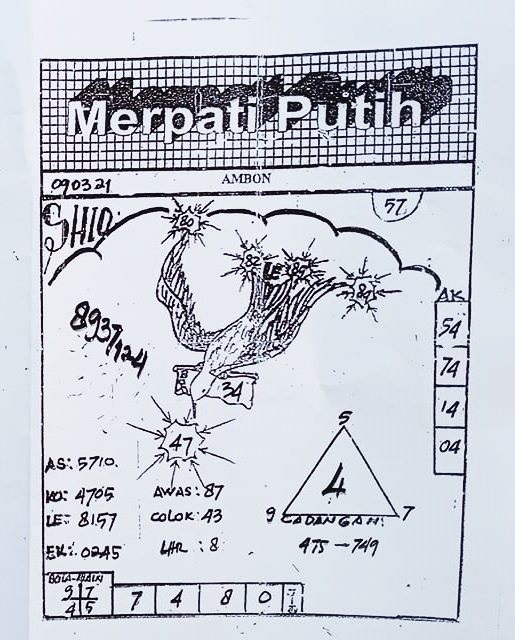 Merpati Putih
AMBON
090321
57
SHIO:
80
82
LE
85
84
8937/124
AK
54
74
14
04
34
47
5
4
9
7
CADANGAN:
475 - 749
AS: 5710.
KO: 4705
LE: 8157
EK: 0245
AWAS: 87
COLOK: 43
LHR: 8
BOLA-MAIN
9 7
4 5
7 4 8 0